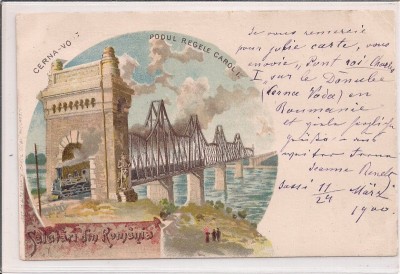 CERNA-VO
PODUL REGELE CAROL I
Salutări din România
Je vous remercie
pour jolie carte, vous
envoie, Pont roi Charles
I, sur le Danube
(Cerna Voda) en
Roumanie
et
Jeanne
Jassi 11/24 März
1900.